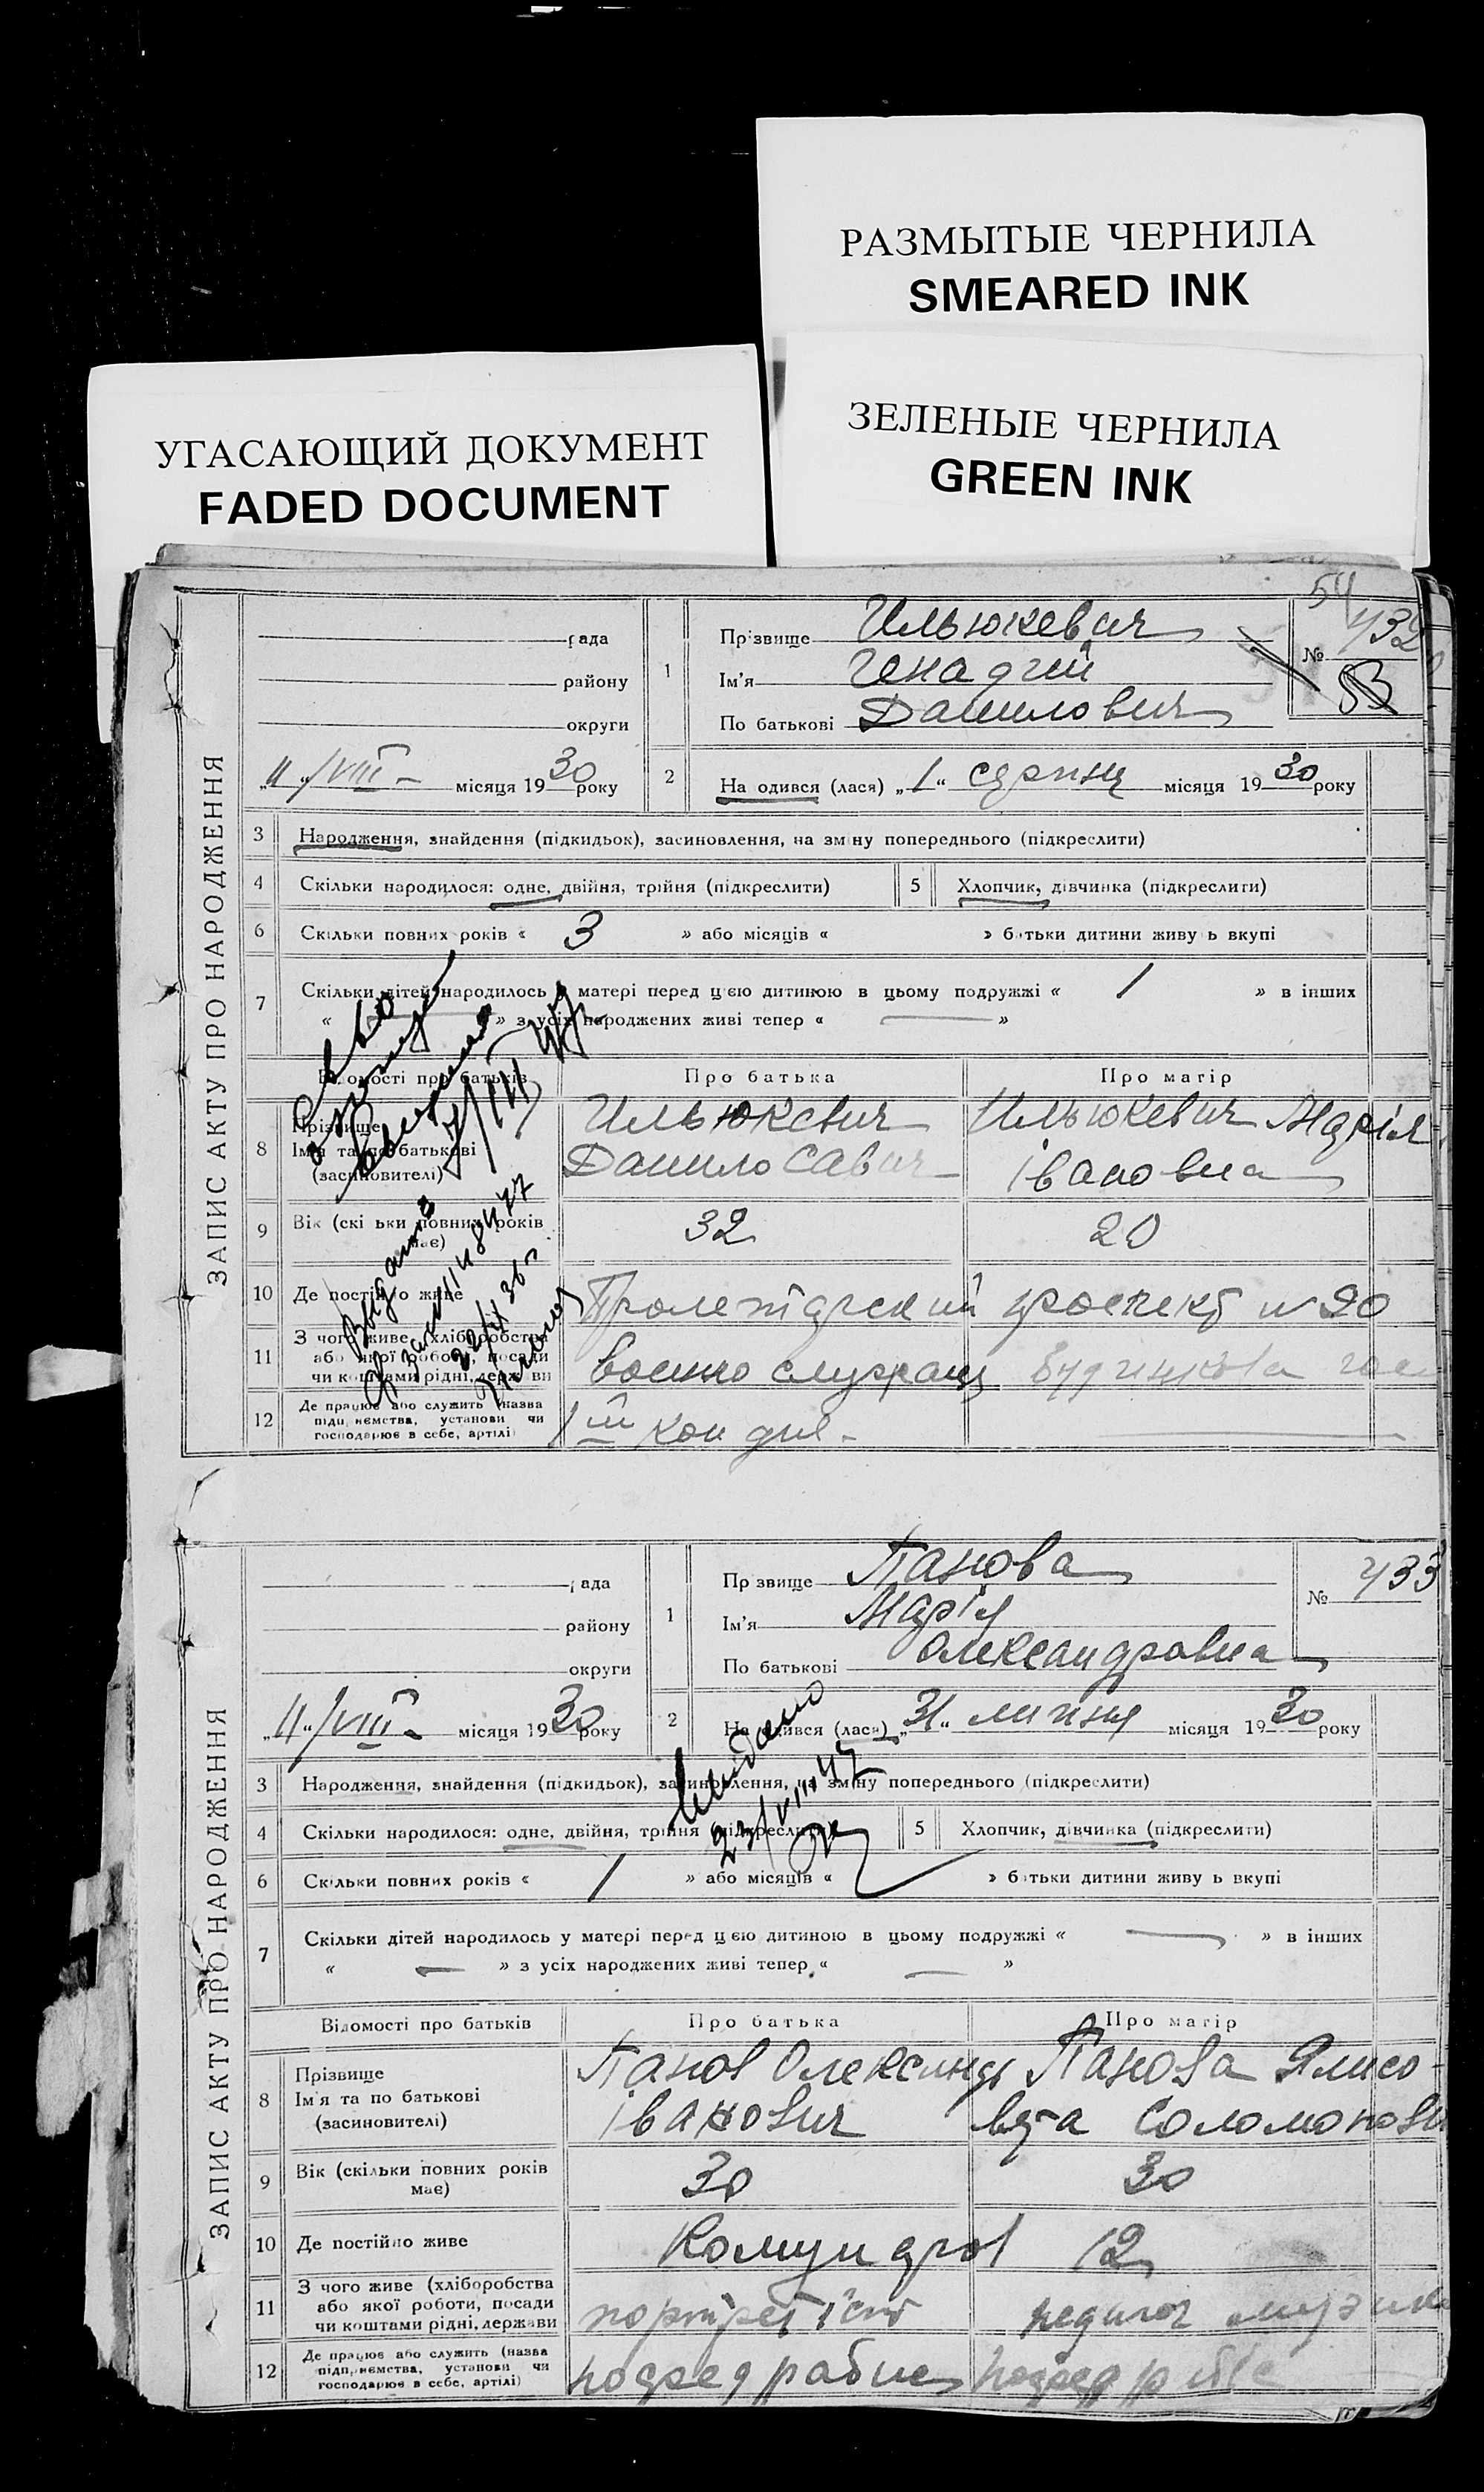 РАЗМЫТЫЕ ЧЕРНИЛА
SMEARED INK
ЗЕЛЕНЫЕ ЧЕРНИЛА
GREEN INK
УГАСАЮЩИЙ ДОКУМЕНТ
FADED DOCUMENT
54
ЗАПИС АКТУ ПРО НАРОДЖЕННЯ
рада
району
округи
„11“/VIII – місяця 1930 року
1
Прізвище Ильюкевич
Ім'я Генадий
По батькові Данилович
№ 432
53
2
На одився (лася) „1“ серпня місяця 1930 року
3 Народження, знайдення (підкидьок), засиновлення, на зміну попереднього (підкреслити)
4 Скільки народилося: одне, двійня, трійня (підкреслити)
5 Хлопчик, дівчинка (підкреслити)
6 Скільки повних років « 3 » або місяців « » батьки дитини живу ь вкупі
7 Скільки дітей народилось у матері перед цією дитиною в цьому подружжі « 1 » в інших
« — » з усіх народжених живі тепер « — »
Відомості про батьків Про батька Про матір
8 Прізвище
Ім'я та по батькові
(засиновителі)
Ильюкевич
Данило Савич
Ильюкевич Марія
Івановна
9 Вік (скі ьки повних років має) 32 20
10 Де постійно живе Пролетарский проспект № 20
11 З чого живе (хліборобства
або якої роботи, посади
чи коштами рідні, держави
военно служащ
12 Де працює або служить (назва
підприємства, установи чи
господарює в себе, артілі)
1
Выдано
22/II 36 г.
ЗАПИС АКТУ ПРО НАРОДЖЕННЯ
рада
району
округи
„11“/VIII – місяця 1930 року
1
Пр звище Панова
Ім'я Марія
По батькові Олександровна
№ 433
2
На одився (лася) „31“ липня місяця 1930 року
Видано
23/VIII 47
3 Народження, знайдення (підкидьок), засиновлення, на зміну попереднього (підкреслити)
4 Скільки народилося: одне, двійня, трійня (підкреслити)
5 Хлопчик, дівчинка (підкреслити)
6 Скільки повних років « 1 » або місяців « » батьки дитини живу ь вкупі
7 Скільки дітей народилось у матері перед цією дитиною в цьому подружжі « — » в інших
« — » з усіх народжених живі тепер « — »
Відомості про батьків Про батька Про матір
8 Прізвище
Ім'я та по батькові
(засиновителі)
Панов Олександр
Іванович
Панова Ялисо-
вета Соломоновн
9 Вік (скільки повних років має) 30 30
10 Де постійно живе Комунаров 12
11 З чого живе (хліборобства
або якої роботи, посади
чи коштами рідні, держави
портретіст
педагог музики
12 Де працює або служить (назва
підприємства, установи чи
господарює в себе, артілі)
посред рабис посред рабис